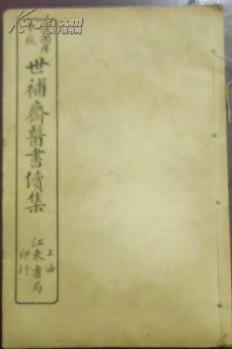 世補齋醫書續集
上海
江東書局
印行